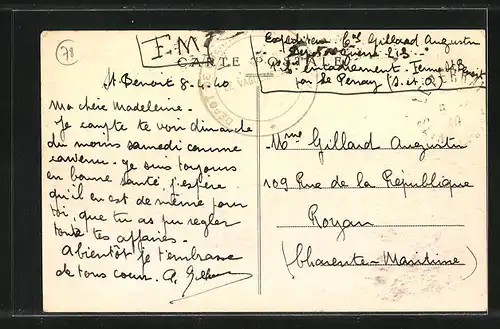 78
F.M
CARTE POSTALE
Expéditeur Cal Gillard Augustin
Dépôt de Guerre
Cantonnement Ferme St B
par le Perray (S. et O.)
DEPOT
St Benoit 8-4-40
Ma chère Madeleine.
Je compte te voir dimanche
du moins samedi comme
convenu. Je suis toujours
en bonne santé, j'espère
qu'il en est de même pour
toi, que tu as pu regler
toute tes affaires.
A bientôt je t'embrasse
de tous coeur. A. Gillard
Mme Gillard Augustin
109 Rue de la République
Royan
(Charente-Maritime)